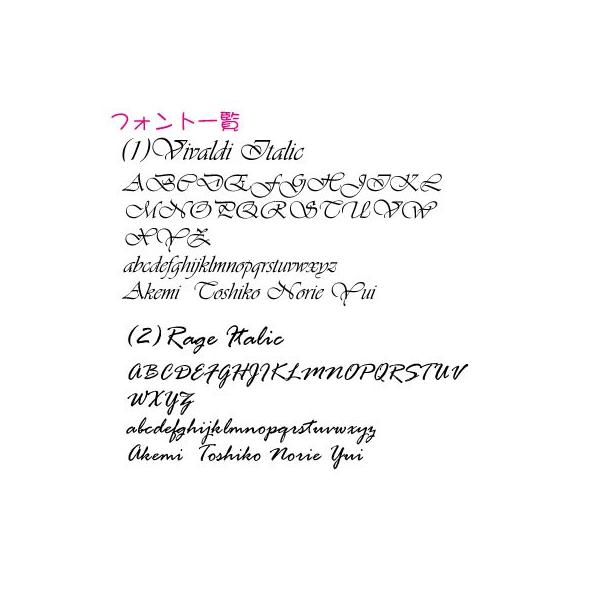 フォント一覧
(1)Vivaldi Italic
ABCDEFGHJIKL
MNOPQRSTUVW
XYZ
abcdefghijklmnopqrstuvwxyz
Akemi Toshiko Norie Yui
(2)Rage Italic
ABCDEFGHJIKLMNOPQRSTUV
WXYZ
abcdefghijklmnopqrstuvwxyz
Akemi Toshiko Norie Yui